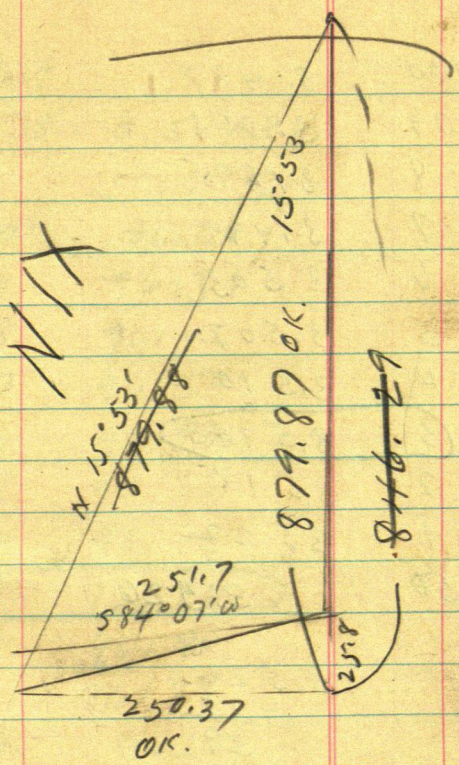 15°53
NIX
N 15°53'
879.88
879.87 OK.
846.29
251.7
S84°07'W
25.8
250.37
OK.